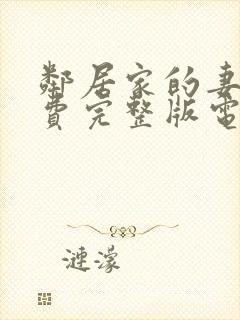 鄰居家的妻
費完整版電
漣濛